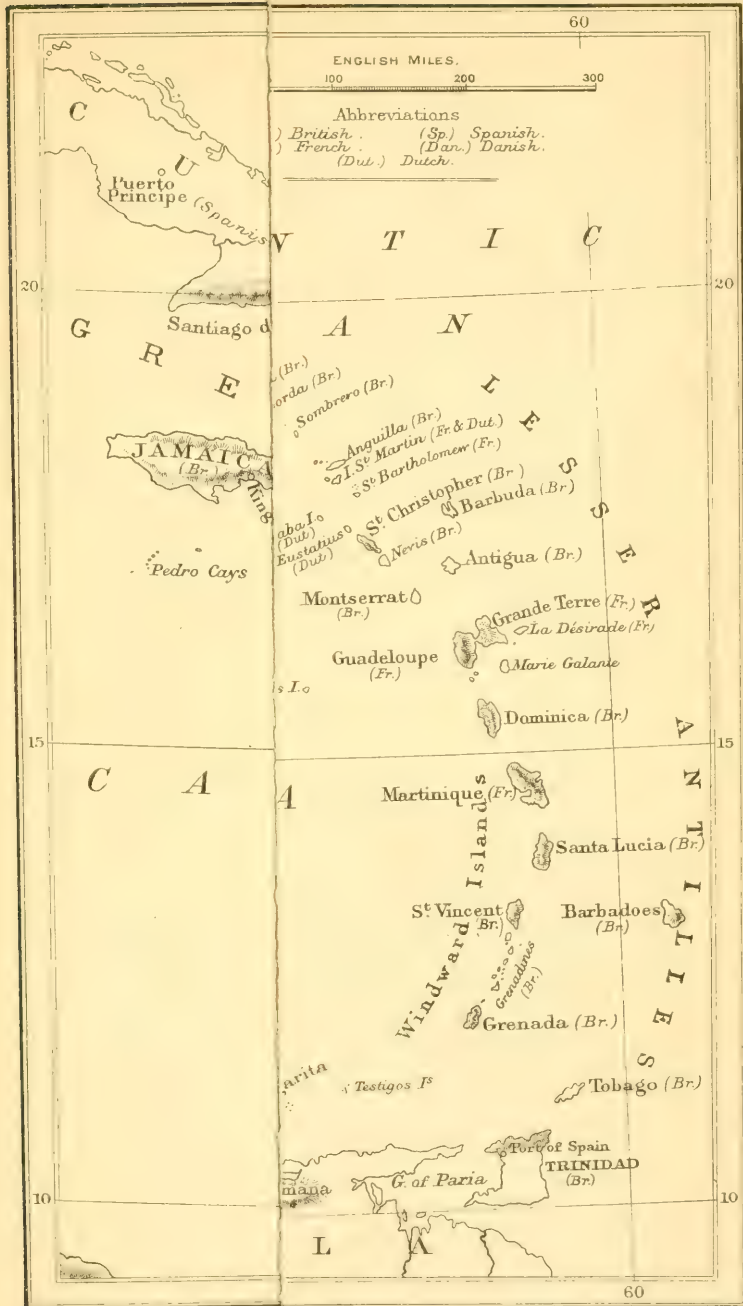 60
ENGLISH MILES.
100 200 300
Abbreviations
) British. (Sp.) Spanish.
) French. (Dan.) Danish.
(Dut.) Dutch.
C U
Puerto
Principe (Spanis
N T I C
20 20
Santiago d
A N
G R E
(Br.)
orda (Br.)
Sombrero (Br.)
L E S S E R
Anguilla (Br.)
I. St. Martin (Fr. & Dut.)
St. Bartholomew (Fr.)
JAMAICA
(Br.)
King
St. Christopher (Br.)
Barbuda (Br.)
aba I.
(Dut.)
Eustatius
(Dut.)
Nevis (Br.)
Antigua (Br.)
Pedro Cays
Montserrat
(Br.)
Grande Terre (Fr.)
La Désirade (Fr.)
Guadeloupe
(Fr.)
Marie Galante
s I.
Dominica (Br.)
15 15
A N T I L L E S
C A A
Martinique (Fr.)
Windward Islands
Santa Lucia (Br.)
St. Vincent
(Br.)
Barbadoes
(Br.)
Grenadines
(Br.)
Grenada (Br.)
arita
Testigos Is
Tobago (Br.)
Port of Spain
TRINIDAD
(Br.)
mana
G. of Paria
10 10
L A
60